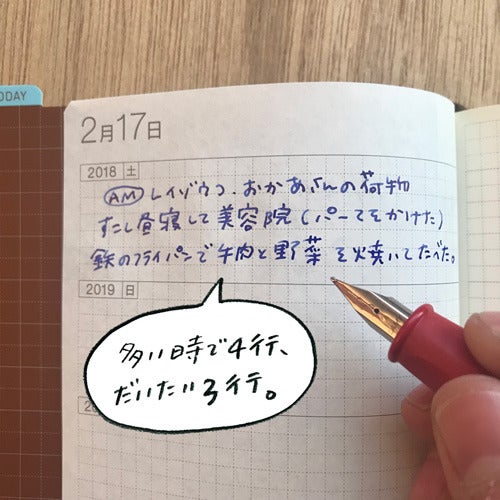 ODAY
2月17日
2018 土
AM レイゾウコ、おかあさんの荷物
すこし昼寝して美容院(パーマをかけた)
鉄のフライパンで牛肉と野菜を焼いてたべた。
2019 日
多い時で4行、
だいたい3行。